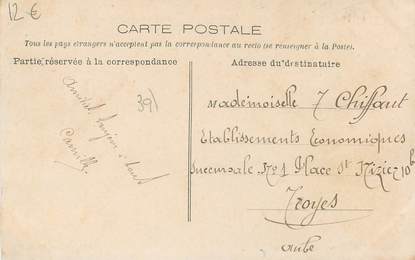 12 €
CARTE POSTALE
Tous les pays étrangers n'acceptent pas la correspondance au recto (se renseigner à la Poste).
Partie réservée à la correspondance
Adresse du destinataire
391
Camille
Mademoiselle J Chiffaut
Etablissements Economiques
Succursale No 1 Place St Nizier 10 b
Troyes
Aube